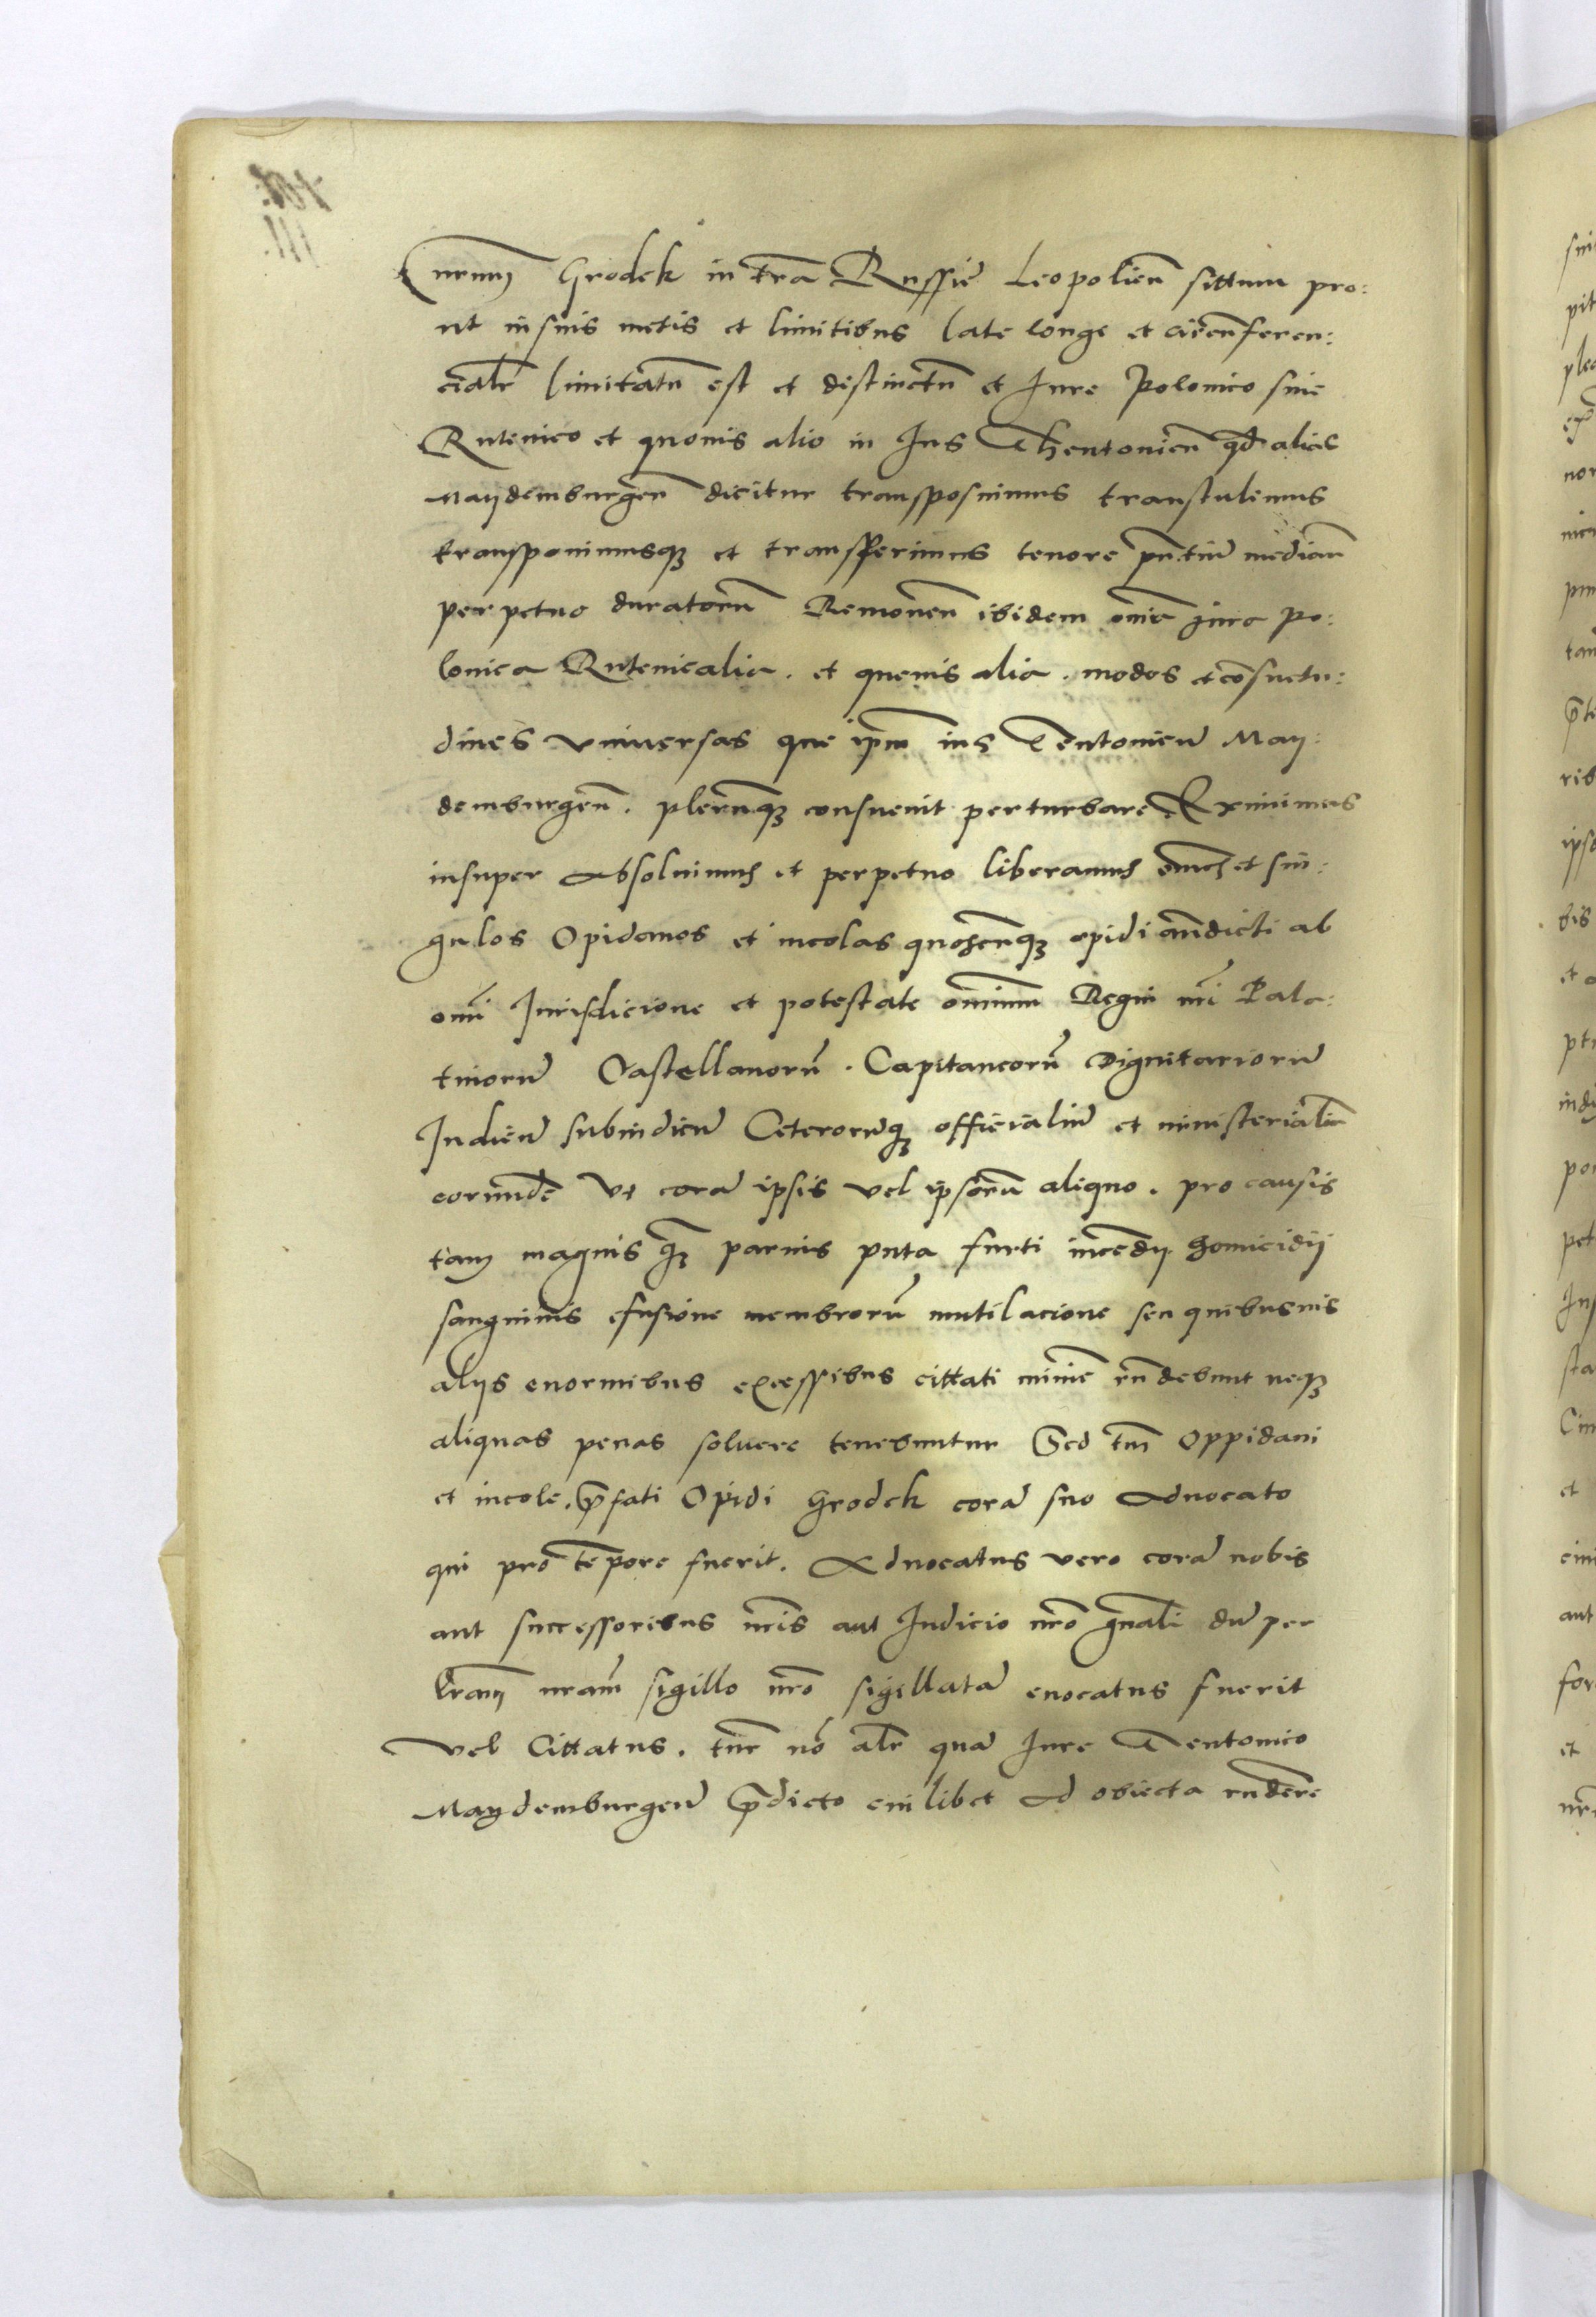 nrum Grodek in tra Russie Leopolien sittum pro:
ut in suis metis et limitibus late longe et circumferen:
cialr limitatu est et distinctu et Jure Polonico sive
Rutenico et quovis alio in Jus Theutonicu qd alias
Maydemburgen dicitur transposuimus transtulimus
transponimusque et transferimus tenore pntiu median
perpetuo duratoru Removen ibidem omia jura Po:
lonica Rutenicalia . et quevis alia . modos et consuetu:
dines universas que ipm ius Teutonicu May:
demburgen . plerunque consuevit perturbare Eximimus
insuper Absolvimus et perpetuo liberamus omnes et sin:
gulos Opidanos et incolas quoscunque opidi andicti ab
omi Jurisdicione et potestate omnium Regni nri Pala:
tinoru Castellanoru . Capitaneoru Dignitarioru
Judicu subiudicu Ceterorumque officialiu et ministerialiu
eorunde Ut cora ipsis vel ipsoru aliquo . pro causis
tam magnis quam parvis puta furti incendy homicidij
sanguinis efusione membroru mutilacione seu quibusvis
alijs enormibus excessibus cittati minime rndebunt neque
aliquas penas solvere tenebuntur Sed tm Oppidani
et incole . prefati Opidi Grodek cora suo Advocato
qui pro tempore fuerit . Advocatus vero cora nobis
aut successoribus nris aut Judicio nro gnali du per
lram nram sigillo nro sigillata evocatus fuerit
vel Cittatus . tuc no alr qua Jure Teutonico
Maydemburgen predicto cuilibet Ad obiecta rndere